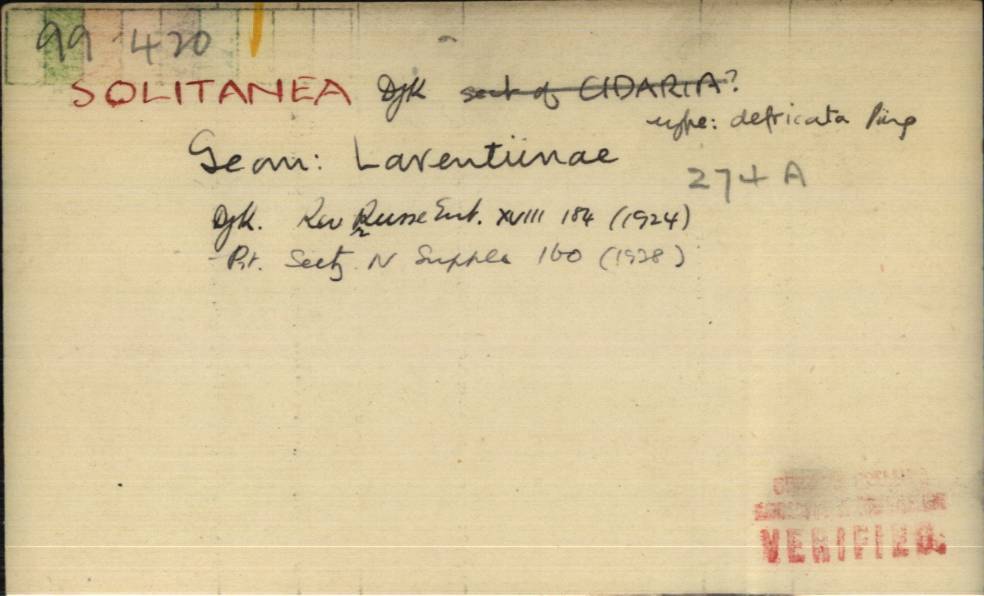 99 420
SOLITANEA Djk sect of CIDARIA?
type: defricata Püng
Geom: Larentiinae
274 A
Djk. Rev Russe Ent. XVIII 184 (1924)
Prt. Seitz IV Supple 160 (1938)
VERIFIED.